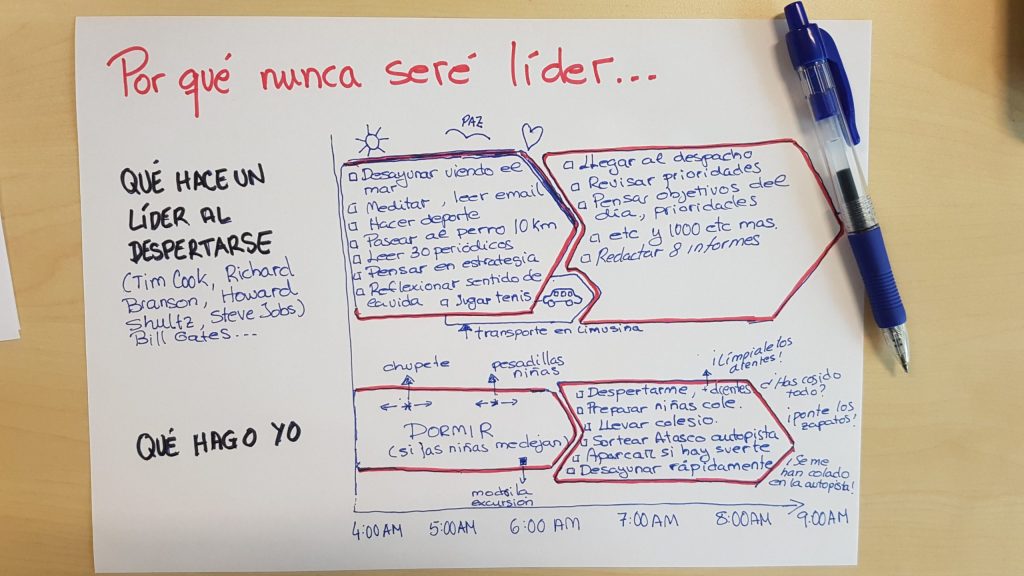 Por qué nunca seré líder...
QUÉ HACE UN
LÍDER AL
DESPERTARSE
(Tim Cook, Richard
Branson, Howard
Shultz, Steve Jobs)
Bill Gates...
PAZ
Desayunar viendo el
mar
Meditar, leer email
Hacer deporte
Pasear al perro 10 km
Leer 30 periódicos
Pensar en estrategia
Reflexionar sentido de
la vida
Jugar tenis
transporte en limusina
Llegar al despacho
Revisar prioridades
Pensar objetivos del
día, prioridades
etc y 1000 etc mas.
Redactar 8 informes
QUÉ HAGO YO
chupete
pesadillas
niñas
DORMIR
(si las niñas me dejan)
mochila
excursión
Despertarme, + dientes
Preparar niñas cole.
Llevar colegio.
Sortear Atasco autopista
Aparcar si hay suerte
Desayunar rápidamente
¡Límpiale los
dientes!
¿Has cosido
todo?
¡ponte los
zapatos!
¡Se me
han colado
en la autopista!
4:00AM 5:00AM 6:00 AM 7:00AM 8:00AM 9:00AM